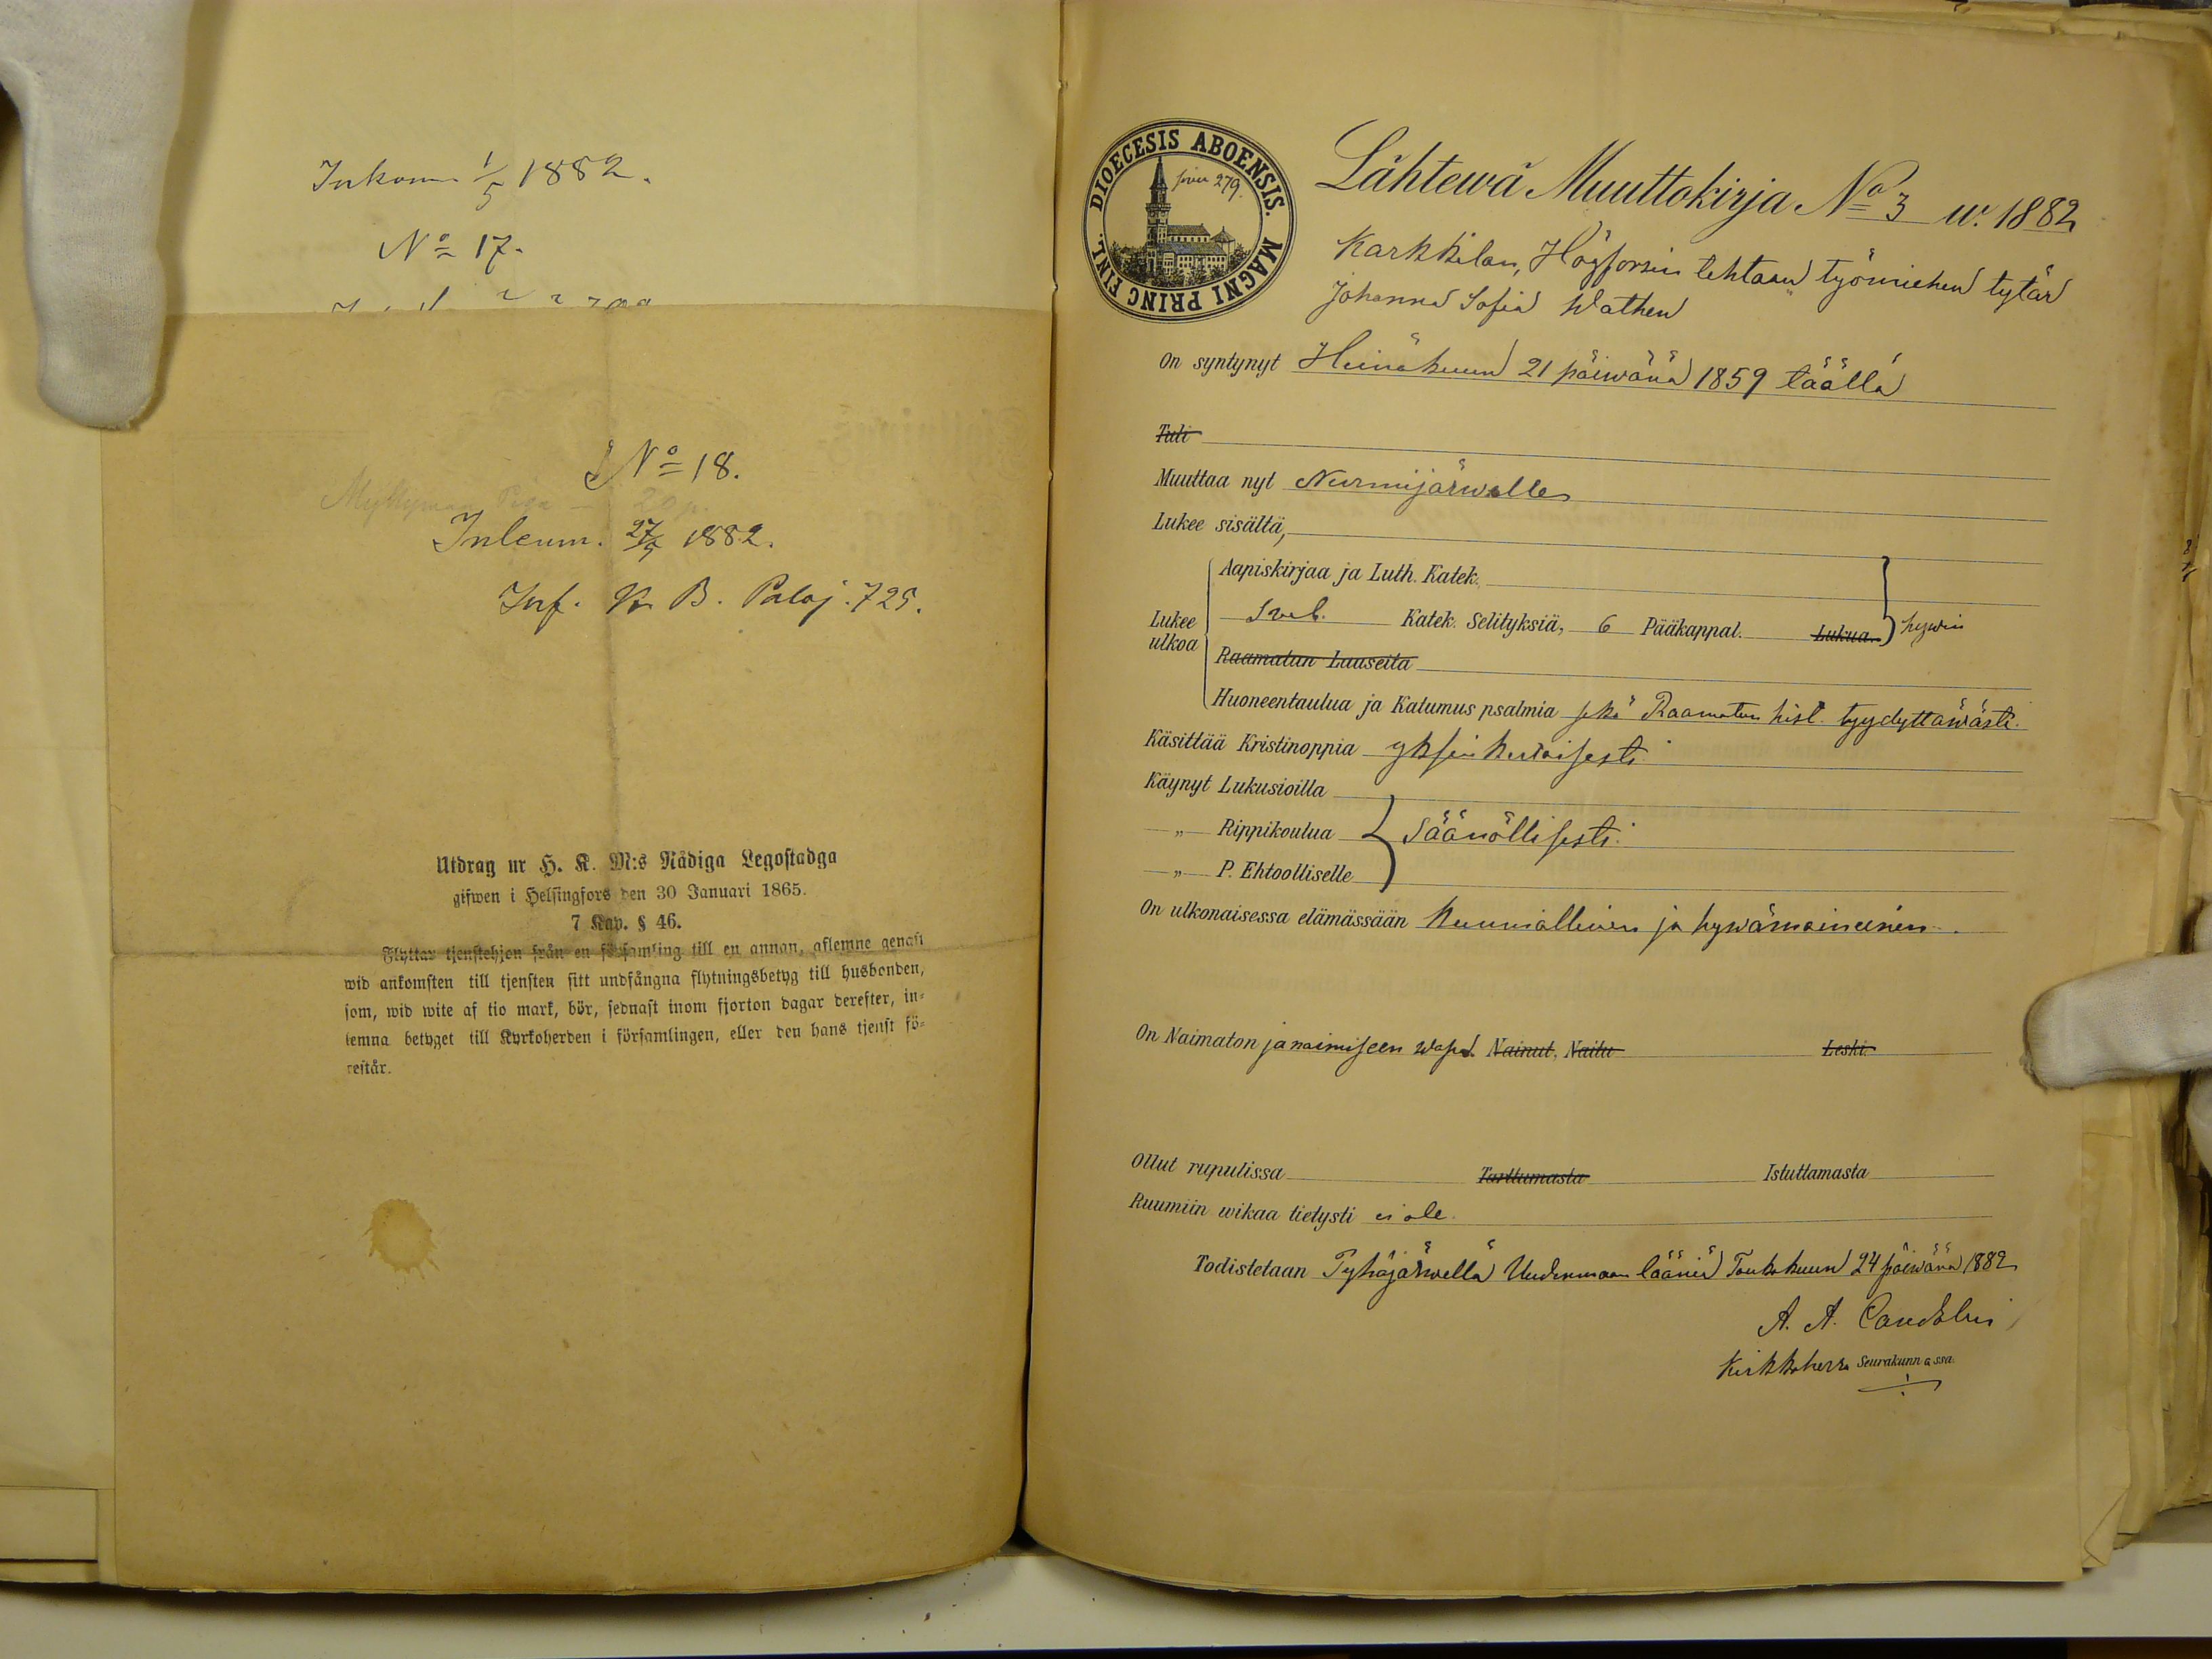 Inkom. 1/5 1882.
No 17.
No 18.
Inlemn. 27/5 1882.
Inf. B. Paloj. 725.
Utdrag ur H. K. M:s Nådiga Legostadga
gifwen i Helsingfors den 30 Januari 1865.
7 Kap. § 46.
Flyttar tjenstehjon från en församling till en annan, aflemne genast
wid ankomsten till tjensten sitt undfångna flytningsbetyg till husbonden,
som, wid wite af tio mark, bör, sednast inom fjorton dagar derefter, in-
lemna betyget till Kyrkoherden i församlingen, eller den hans tjenst fö-
restår.
DIOECESIS ABOENSIS. MAGNI PRINC FINL.
sivu 279.
Lähtewä Muuttokirja No 3 w. 1882
Karkkilan, Högforsin tehtaan työmiehen tytär
Johanna Sofia Wathen
On syntynyt Heinäkuun 21 päiwänä 1859 täällä
Tuli
Muuttaa nyt Nurmijärwelle
Lukee sisältä,
Aapiskirjaa ja Luth. Katek.
Lukee ulkoa Sveb. Katek. Selityksiä, 6 Pääkappal. Lukua hywin
Raamatun Lauseita
Huoneentaulua ja Katumus psalmia sekä Raamatun hist. tyydyttäwästi.
Käsittää Kristinoppia yksinkertaisesti.
Käynyt Lukusioilla
—„— Rippikoulua Säänöllisesti.
—„— P. Ehtoolliselle
On ulkonaisessa elämässään kunniallinen ja hywämaineinen.
On Naimaton ja naimiseen wapa. Nainut, Naitu Leski.
Ollut rupulissa Tarttumasta Istuttamasta
Ruumiin wikaa tietysti ei ole.
Todistetaan Pyhäjärwellä Uudenmaan lääniä Toukokuun 24 päiwänä 1882
A. A. Candolin
Kirkkoherra Seurakunnassa.